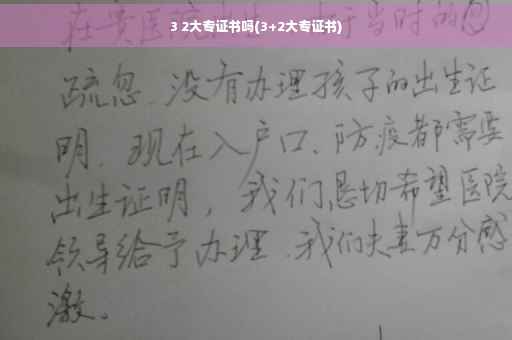 3 2大专证书吗(3+2大专证书)
在贵医院出生,由于当时的
疏忽,没有办理孩子的出生证
明.现在入户口、防疫都需要
出生证明,我们恳切希望医院
领导给予办理.我们夫妻万分感
激。